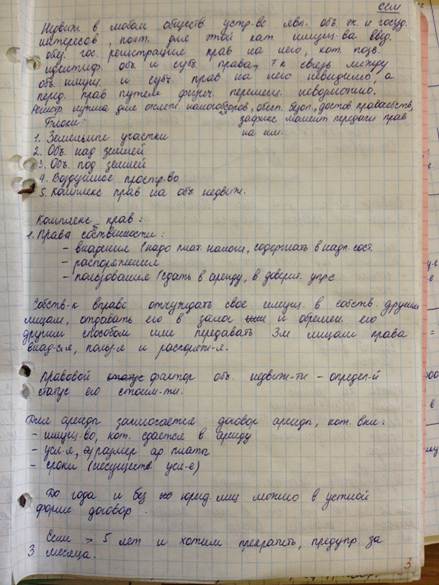 сем
Недвиж. в любом обществ. устр-ве явл. объ. ж. и госуд.
интересов, поэт. для этой кат. имущ-ва вв.
обяз. гос. регистрация прав на него, кот. позв.
идентиф. объ. и субъ. права, т.к. связь между
объ. имущ. и субъ. прав на него невидима, а
перед. прав путём физич. перемещ. невозможно.
нужна для налогооборов, обесп. достов. правообств,
зафикс. момент передачи прав
на им.
Блоки:
1. Земельные участки
2. Объ. над землей
3. Объ. под землей
4. Воздушное простр-во
5. Комплекс прав на объ. недвиж.
Комплекс прав:
1. Права собственности:
- владения (надо плат. налоги, содержать в надл. сост.
- распоряжения
- пользования (сдать в аренду, в доверит. упр.
Собств-к вправе отчуждать свое имущ. в собств. другим
лицам, отдавать его в залог и обремен. его
другим способом или передавать 3м лицам права
влад-я, польз-я и распоряж-я.
Правовой фактор объ. недвиж-ти - определ-й
статус его стоим-ти.
Для аренды заключается договор аренды, кот. вкл:
- имущ-во, кот. сдается в аренду
- усл-я, размер ар. платы
- сроки (несуществ. усл-е)
До года и без юрид. лиц можно в устной
форме договор.
Если > 5 лет и хотим прекратить, предупр. за
3 месяца.
3